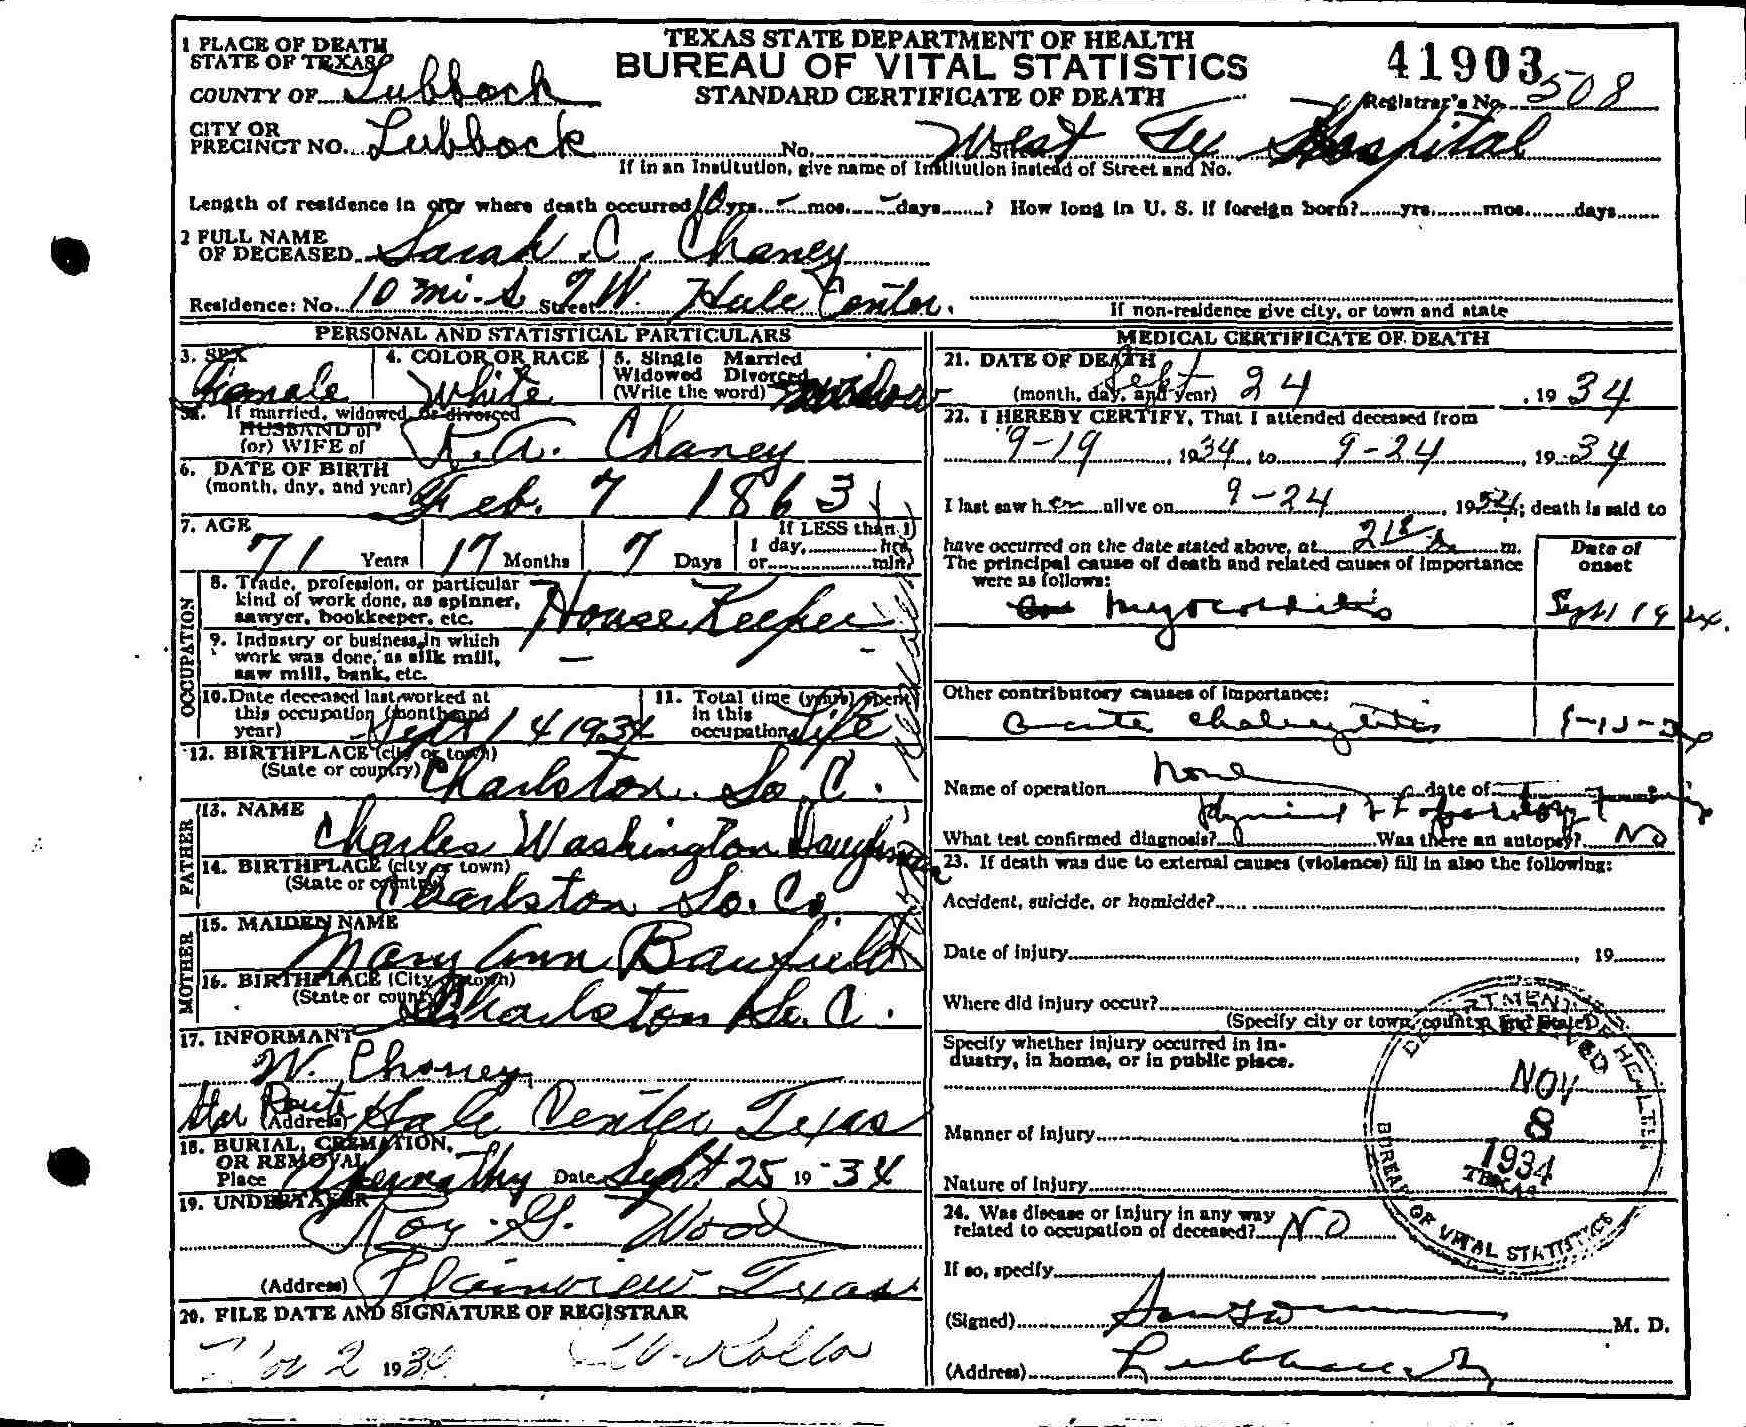 TEXAS STATE DEPARTMENT OF HEALTH
BUREAU OF VITAL STATISTICS
STANDARD CERTIFICATE OF DEATH
41903
Registrar's No. 508
1 PLACE OF DEATH
STATE OF TEXAS
COUNTY OF Lubbock
CITY OR
PRECINCT NO. Lubbock No. West Tex Hospital Street
If in an Institution, give name of Institution instead of Street and No.
Length of residence in city where death occurred 10 yrs. - mos. - days ? How long in U. S. if foreign born? yrs. mos. days
2 FULL NAME
OF DECEASED Sarah C. Chaney
Residence: No. 10 mi. S. & W. Street Hale Center.
If non-residence give city, or town and state
PERSONAL AND STATISTICAL PARTICULARS
3. SEX Female
4. COLOR OR RACE White
5. Single Married
Widowed Divorced
(Write the word) Widow
5a. If married, widowed or divorced
HUSBAND of
(or) WIFE of R. A. Chaney
6. DATE OF BIRTH
(month, day, and year) Feb. 7 1863
7. AGE
71 Years 17 Months 7 Days
If LESS than 1
1 day, hrs.
or min?
OCCUPATION
8. Trade, profession, or particular
kind of work done, as spinner,
sawyer, bookkeeper, etc. House Keeper
9. Industry or business in which
work was done, as silk mill,
saw mill, bank, etc. - -
10. Date deceased last worked at
this occupation (month and
year) Sept 14 1934
11. Total time (years) spent
in this
occupation Life
12. BIRTHPLACE (city or town)
(State or country) Charlston So. C.
FATHER
13. NAME
Charles Washington
14. BIRTHPLACE (city or town)
(State or country) Charlston So. Co.
MOTHER
15. MAIDEN NAME
Mary Ann Baufield
16. BIRTHPLACE (City or town)
(State or country) Charlston So. C.
17. INFORMANT
W. Chaney
Star Route
(Address) Hale Center Texas
18. BURIAL, CREMATION,
OR REMOVAL
Place Abernathy Date Sept 25 19-34
19. UNDERTAKER
Roy G. Wood
(Address) Plainview Texas
20. FILE DATE AND SIGNATURE OF REGISTRAR
Nov 2 1934
MEDICAL CERTIFICATE OF DEATH
21. DATE OF DEATH
(month, day, and year) Sept 24, 1934
22. I HEREBY CERTIFY, That I attended deceased from
9-19, 1934, to 9-24, 1934
I last saw her alive on 9-24, 1934; death is said to
have occurred on the date stated above, at m.
The principal cause of death and related causes of importance
were as follows:
Date of
onset
myocorditis Sept 19 34.
Other contributory causes of importance:
acute
Name of operation none date of
What test confirmed diagnosis? Was there an autopsy? NO
23. If death was due to external causes (violence) fill in also the following:
Accident, suicide, or homicide?
Date of injury , 19
Where did injury occur?
(Specify city or town, county, and State)
Specify whether injury occurred in in-
dustry, in home, or in public place.
Manner of injury
Nature of injury
24. Was disease or injury in any way
related to occupation of deceased? NO
If so, specify
(Signed) M. D.
(Address) Lubbock
DEPARTMENT OF HEALTH
RECEIVED
NOV
8
1934
TEXAS
BUREAU OF VITAL STATISTICS